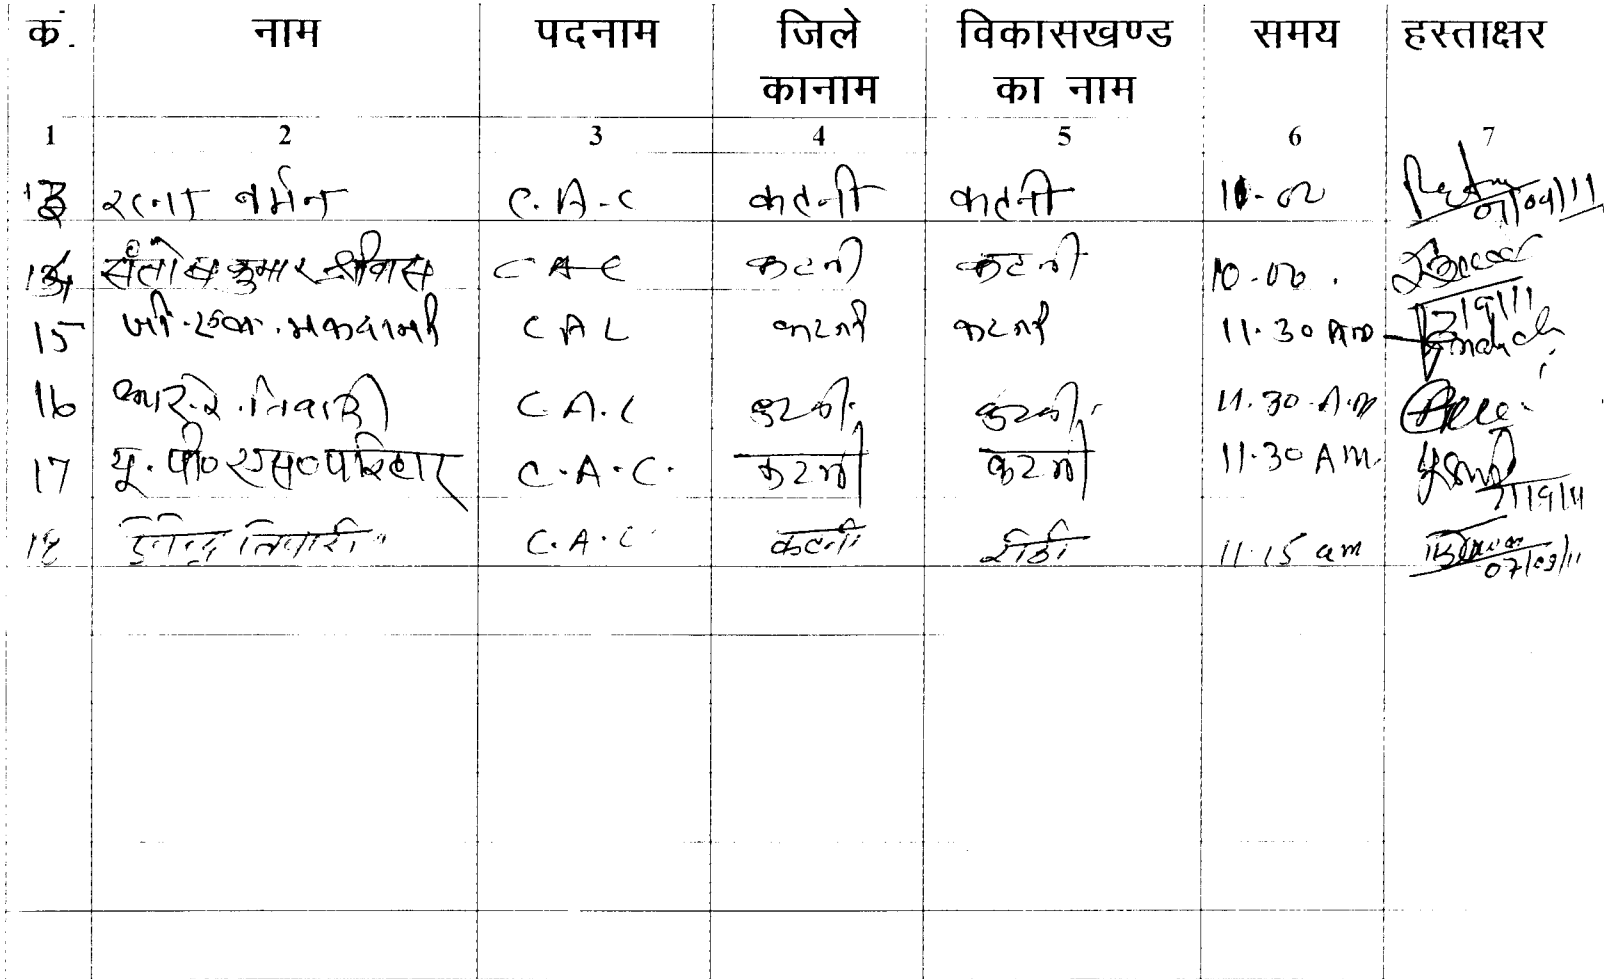 कं. नाम पदनाम जिले कानाम विकासखण्ड का नाम समय हस्ताक्षर
1 2 3 4 5 6 7
13 रत्ना बर्मन C.A-C कटनी कटनी
14 संतोष कुमार श्रीवास CAC कटनी कटनी 10.00.
15 CAC कटनी कटनी 11.30 AM
16 आर.रे.तिवारी C A.C कटनी. कटनी. 11.30 A.M
17 यू.पी०एस०परिहार C.A.C. कटनी कटनी 11.30 AM. 7/9/11
18 तिवारी C.A.C कटनी रीठी 11.15 am 07/09/11